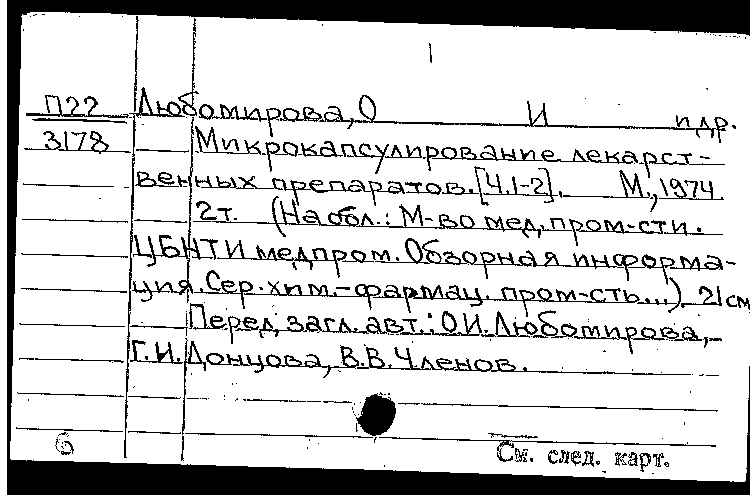 П22 Любомирова, О И и др.
3178 Микрокапсулирование лекарст-
венных препаратов. [Ч.1-2]. М., 1974.
2т. (На обл.: М-во мед. пром-сти.
ЦБНТИ медпром. Обзорная информа-
ция. Сер. хим.-фармац. пром-сть...). 21 см
Перед загл. авт.: О.И. Любомирова,
Г.И. Донцова, В.В. Членов.
6 См. след. карт.